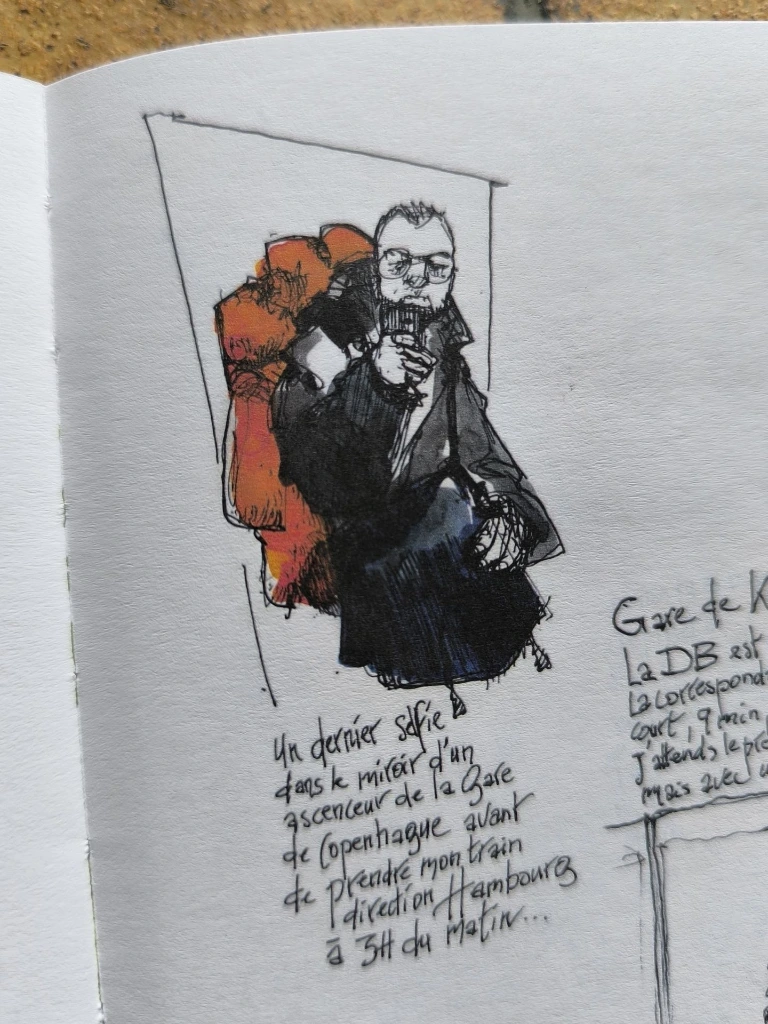 Un dernier selfie
dans le miroir d'un
ascenceur de la Gare
de Copenhague avant
de prendre mon train
direction Hambourg
à 3H du matin...
Gare de K
La DB est
La correspond
court, 9 min
J'attends le pr
mais avec u